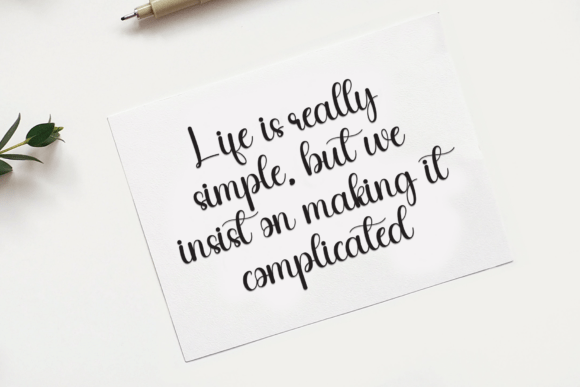 Life is really
simple, but we
insist on making it
complicated